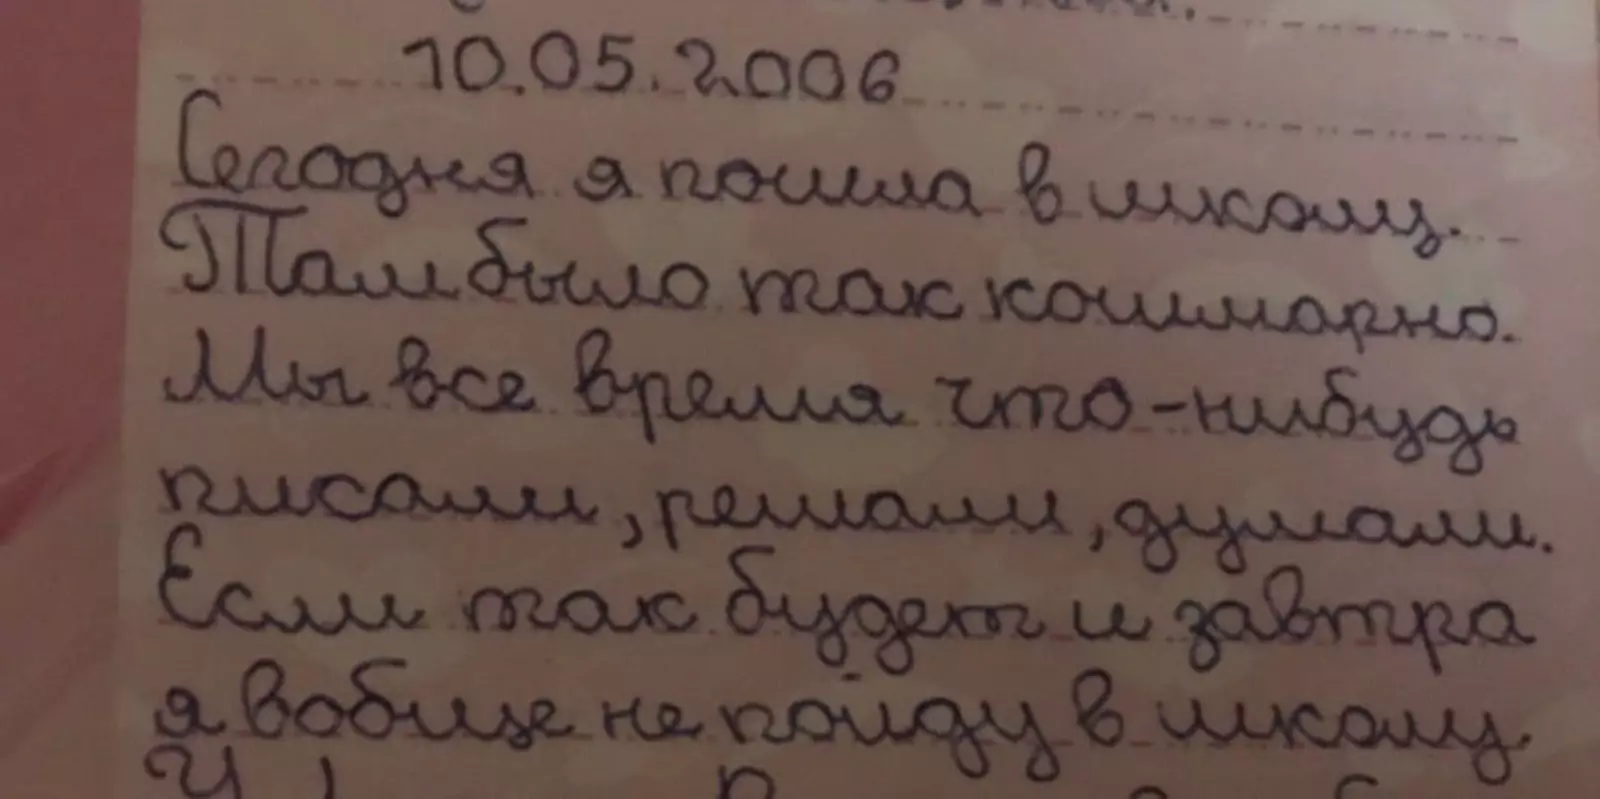 10.05.2006
Сегодня я пошла в школу.
Там было так кошмарно.
Мы все время что-нибудь
писали, решали, думали.
Если так будет и завтра
я вобще не пойду в школу.